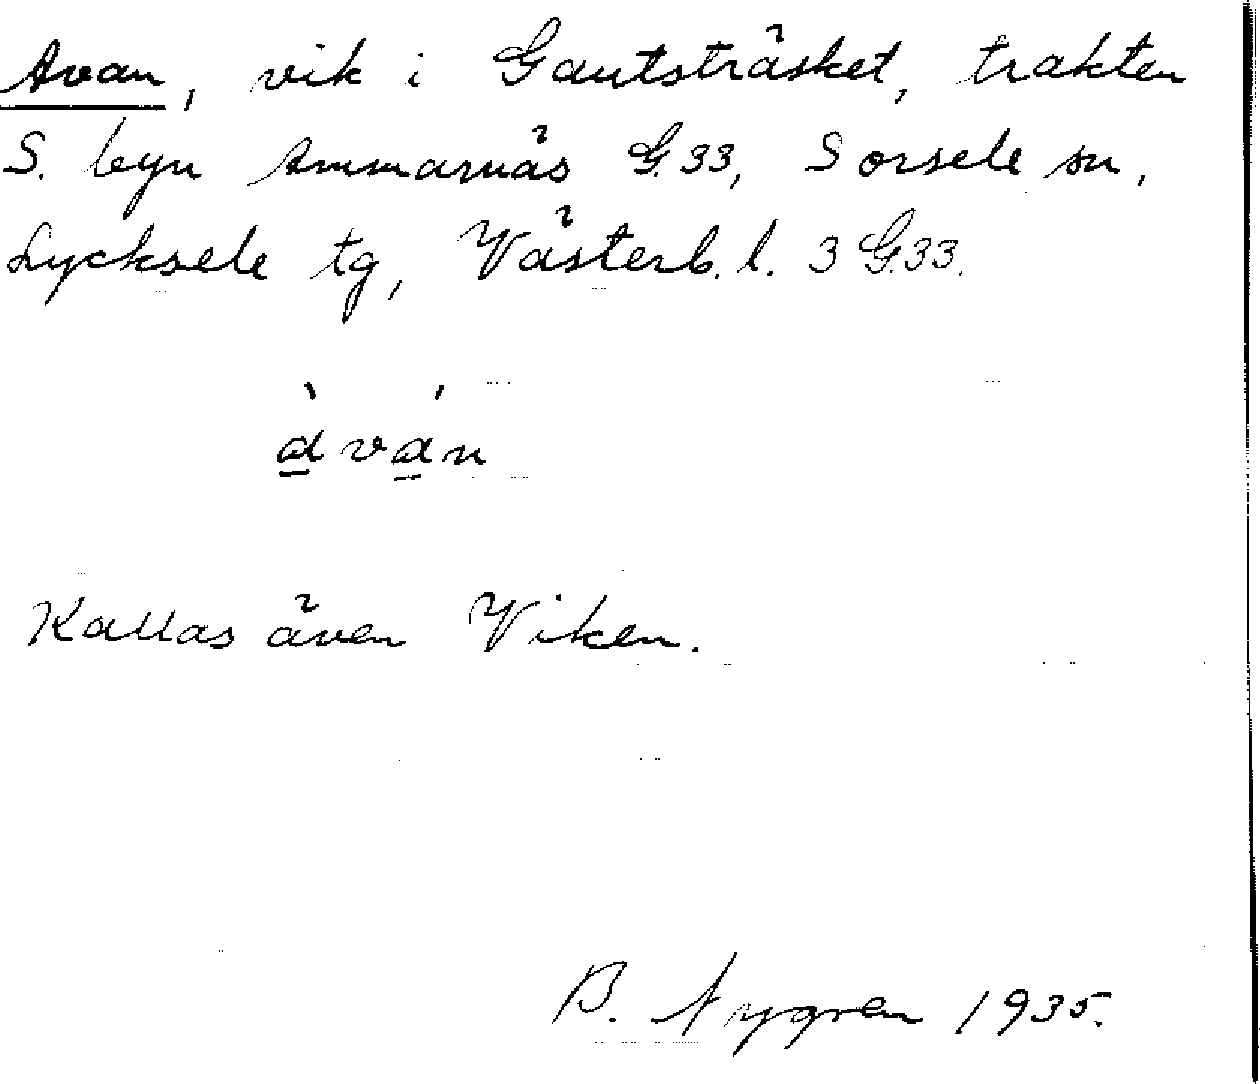 Avan, vik i Gautsträsket, trakten
S. byn Ammarnäs G.33, Sorsele sn,
Lycksele tg, Västerb. l. 3 G.33.
àván
Kallas även Viken.
B. Nygren 1935.